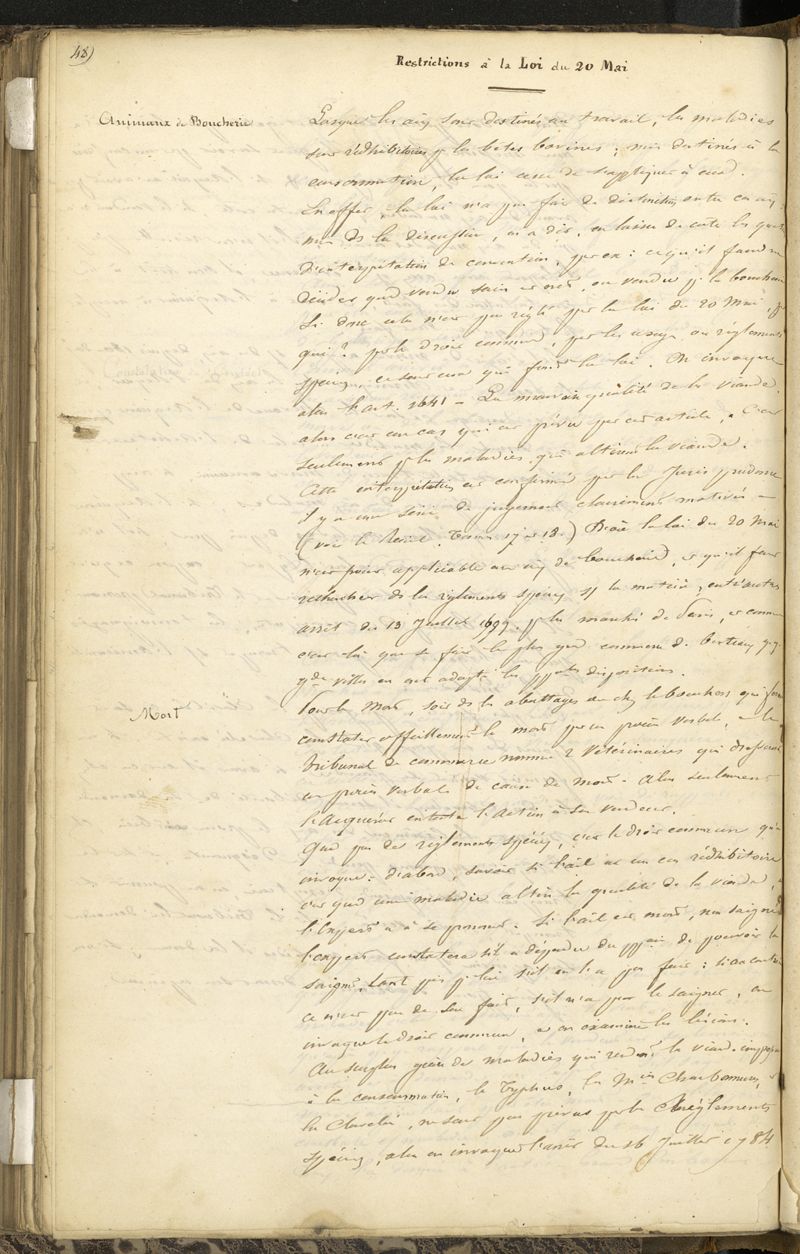 48)
Restrictions à la Loi du 20 Mai
Animaux de Boucherie
Lorsque les aux sont destinés au travail, les maladies
sont rédhibitoires pr les bêtes bovines; mais destinés à la
consommation, la loi cesse de s'appliquer à eux.
En effet, la loi n'a pas fait de distinction entre ces aux
mais ds la discussion, on a dit, en laisser de côté les quest
d'interprétation de convention, par ex: ce qu'il faudra
décider qud vendu sain et net, ou vendu pr la boucherie
Si donc cela n'est pas réglé par la loi du 20 Mai, par
qui? par le droit commun, par les usages ou règlements
spéciaux, ce sont eux qui font la loi. On invoque
alors l'art. 1641 - La mauvaise qualité de la viande
alors c'est un cas qui est prévu par cet article. C'est
seulement pr les maladies qui altèrent la viande.
Cette interprétation est confirmée par la Jurisprudence
il y a une série de jugements clairement motivés
(voir le Recueil Tomes 17 et 18.) D'où la loi du 20 Mai
n'est point applicable aux aux de boucherie, et qu'il faut
rechercher ds les règlements spéciaux sr la matière, entr'autres
arrêt du 13 Juillet 1699, pr les marchés de Paris, et comme
c'est là que se fait le plus grd commerce de bestiaux
gdes villes en ont adopté les ppales dispositions.
Mort
Pour la Mort, soit ds les abattages ou chez le boucher, qui fera
constater officiellement la mort par un procès verbal, et le
tribunal de commerce nomme 2 Vétérinaires qui dressent
un procès verbal de cause de mort. Alors seulement
l'acquéreur intente l'action à son vendeur.
Qud pas de règlements spéciaux, c'est le droit commun qu'on
invoque: d'abord, savoir si l'aal a un cas rédhibitoire
c'est qud une maladie altère la qualité de la viande,
l'Expert a à se prononcer. Si l'aal est mort, non saigné
l'expert constatera s'il a dépendu du de pouvoir le
saigner, tant pis pr lui s'il ne l'a pas fait: si au contraire
ce n'est pas de son fait, s'il n'a pas pu le saigner, on
invoque le droit commun, et on examine les lésions.
Au surplus de maladies qui rendent la viande impropre
à la consommation, le Typhus, les Mies Charbonneuses,
la Clavelée, ne sont pas prévus par les Règlements
spéciaux, alors on invoque l'arrêt du 16 Juillet 1784